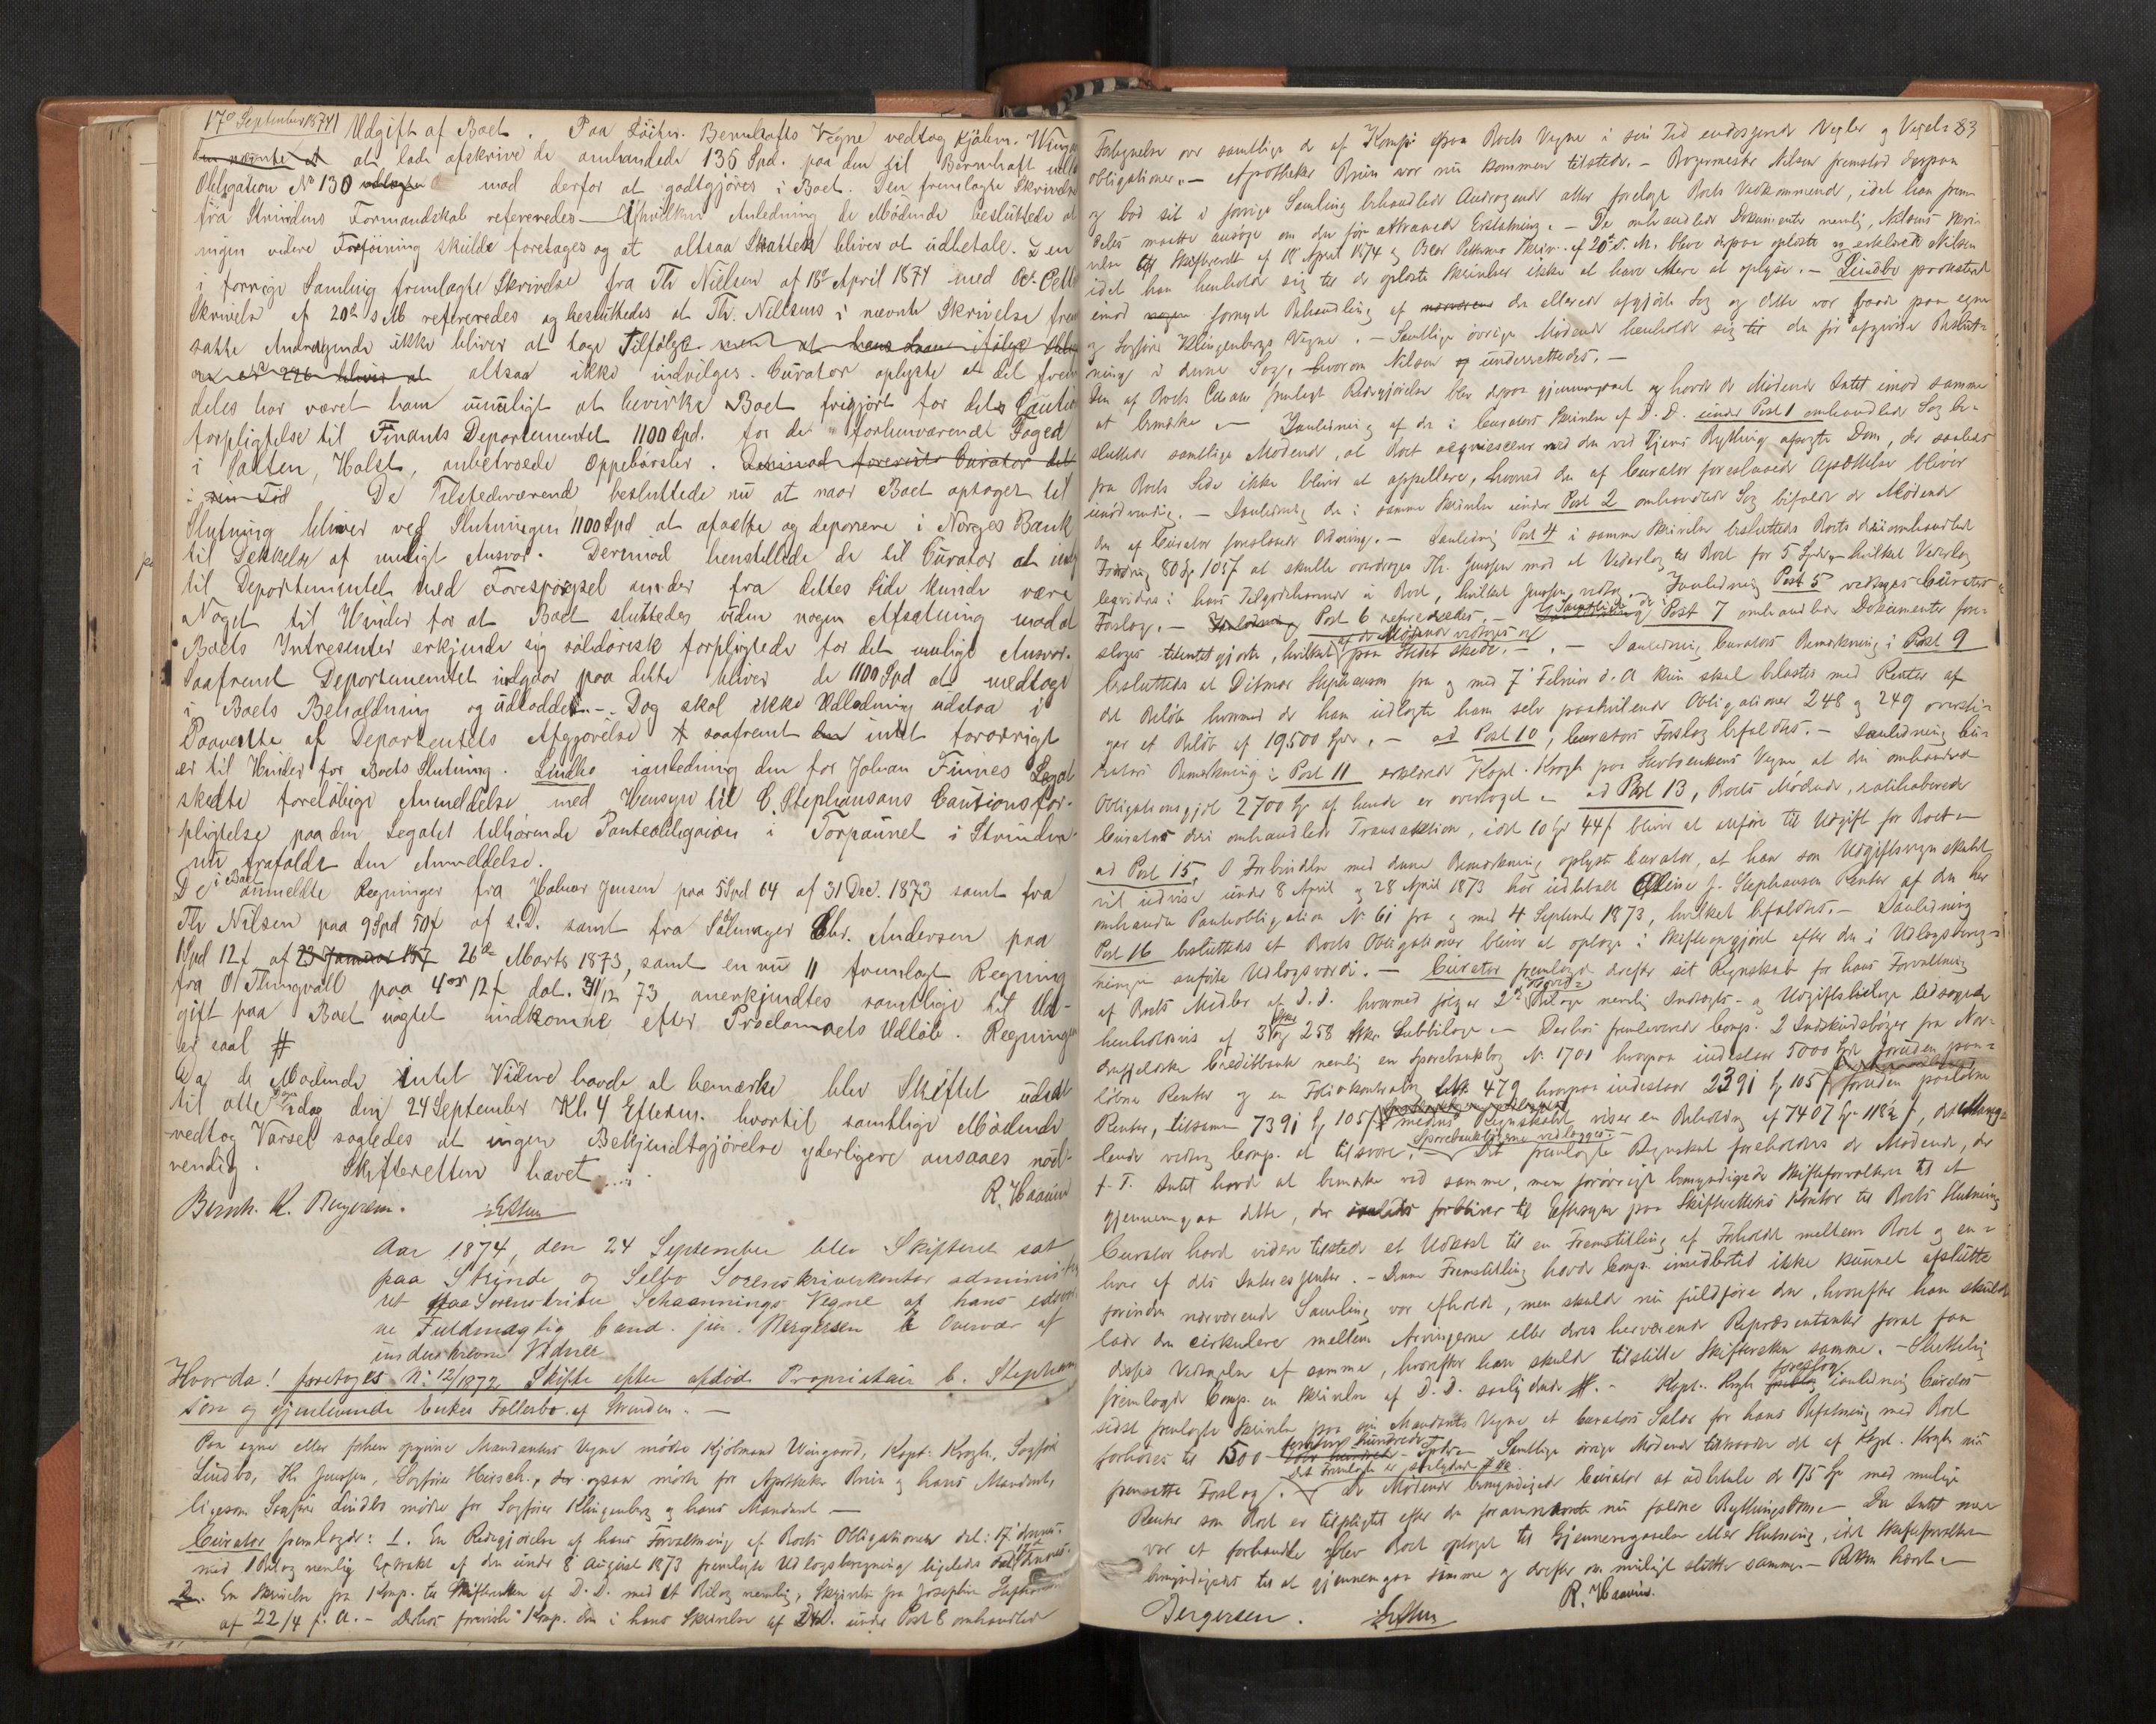 17de September 1874
Udgift af Boet. Paa Löitn. Bernhofts Vegne vedtog Kjöbm. Winga
den nævnte at at lade afskrive de omhandlede 135 Spd. paa den til Bernhoft udl
Obligation No 130 udlagte mod derfor at godtgjöres i Boet. Den fremlagte Skrivelse
fra Strindens Formandskab refereredes — I hvilken Anledning de Mödende besluttede at
ingen videre Forföining skulde foretages og at altsaa Skatten bliver at udbetale. Den
i forrige Samling fremlagte Skrivelse fra Th Nielsen af 18de April 1874 med O. Pett
Skrivelse af 20de s M refereredes og besluttedes at Th. Nielsens i nævnte Skrivelse frem
satte Andragende ikke bliver at tage Tilfölge men at hans Laan ifölge Oblig
altsaa ikke indvilges. Curator oplyste at det frem
deles har været ham umuligt at bevirke Boet frigjört for dets Cautions
forpligtelse til Finants Departementet 1100 Spd. for de forhenværende Foged
i Salten, Holst, anbetroede Oppebörsler. Derimod foreviste Curator det
i sin Tid De Tilstedeværende besluttede nu at naar Boet optages til
Slutning bliver ved Slutningen 1100 Spd at afsætte og deponere i Norges Bank
til Dækkelse af muligt Ansvar. Derimod henstillede de til Curator at indg
til Departementet med Forespörgsel om der fra dettes Side kunde være
Noget til Hinder for at Boet sluttedes uden nogen Afsætning mod at
Boets Intressenter erkjende sig solidarisk forpligtede for det mulige Ansvar.
Saafremt Departementet indgaar paa dette bliver de 1100 Spd at medtage
i Boets Beholdning og udlodde. — Dog skal ikke Udlodning udstaa i
Paavente af Departemtets Afgjörelse saafremt intet forövrigt
er til Hinder for Boets Slutning. Lindbo ianledning den for Johan Finnes Legat
skedte foreløbige Anmeldelse med Hensyn til C. Stephansons Cautionsfor-
pligtelse paa den Legatet tilhörende Panteobligation i Torpaunet i Strinden
nu frafaldt den Anmeldelse.
De i Boet anmeldte Regninger fra Halvor Jensen paa 5 Spd 64 af 31 Dec. 1873 samt fra
Th Nilsen paa 9 Spd 50 f af s.D. samt fra Salmager Chr. Andersen paa
1 Spd 12 f af 23 Januar 187 26de Marts 1873, samt en nu fremlagt Regning
fra O Thingvall paa 4 ort 12 f dat. 31/12 73 anerkjendtes samtlige til Ud-
gift paa Boet uagtet indkomne efter Proclamaets Udlöb. Regningen
er saal #
Da de Mödende Intet Videre havde at bemærke blev Skiftet udsat
til otte Dage idag den 24 September Kl. 4 Efterm. hvortil samtlige Mödende
vedtog Varsel saaledes at ingen Bekjendtgjörelse yderligere ansaaes nöd-
vendig. Skifteretten hævet
Bernh. K. Bergersen. R. Haarin
Aar 1874, den 24 September blev Skifteret sat
paa Strinde og Selbo Sorenskriverkontor administre
ret paa Sorenskriver Schaannings Vegne af hans edsvor
ne Fuldmægtig Cand. jur. Bergersen i Overvær af
underskrevne Vidner
Hvorda! foretoges No 12/1872 Skifte efter afdöde Proprietair C. Stephan
son og gjenlevende Enkes Fællesbo af Strinden. —
Paa egne eller forhen opgivne Mandanters Vegne mödte Kjöbmand Wingaard, Kapt. Krogh, Sagförer
Lindbo, Th Jenssen, Sagförer Hirsch, der ogsaa mödte for Apotheker Bruun og hans Mandant,
ligesom Sagförer Lindbo mödte for Sagförer Klingenberg og hans Mandant —
Curator fremlagde: 1. En Redegjörelse af hans Forvaltning af Boets Obligationer dat: 17 dennes.
med 1 Bilag nemlig Extrakt af den under 8 August 1873 fremlagte Udlagsberegning ligeledes dat 17 dennes.
2. En Skrivelse fra Komp. til Skifteretten af D. D. med et Bilag nemlig, Skrivelse fra Josephine Stephanson
af 22/4 f. A. — Derhos foreviste Komp. den i hans Skrivelse af D.D. under Post 8 omhandlede
83
Fabegnelse over samtlige de af Komp: paa Boets Vegne i sin Tid endosserede Vexler og Vexel-
obligationer. — Apotheker Bruun var nu kommen tilstede. — Borgermester Nilsen fremstod derpaa
og bad sit i forrige Samling behandlede Andragende atter forelagt Boets Vedkommende, idet han frem-
deles maatte ansöge om den för attraaede Erstatning. — De omhandlede Dokumenter nemlig, Nilsens Skri-
velse til Skifteretten af 18 April 1874 og Peter Pettersens Skriv. af 20de s. M. blev derpaa oplæste og erklærede Nilsen
idet han henholdt sig til de oplæste Skrivelser ikke at have Mere at oplyse. — Lindbo protesterede
imod nogen fornyet Behandling af nærværende den allerede afgjorte Sag og dette var baade paa egne
og Sagförer Klingenbergs Vegne. — Samtlige övrige Mödende henholdt sig til den för afgivne Beslut-
ning i denne Sag, hvorom Nilsen og underrettedes. —
Den af Boets Curator fremlagte Redegjörelse blev derpaa gjennemgaaet og havde de Mödende Intet imod samme
at bemærke. — Ianledning af den i Curators Skrivelse af D. D. under Post 1 omhandlede Sag be-
sluttede samtlige Mödende, at Boet acquiescerer ved den ved Hjems Bything afsagte Dom, der saaledes
fra Boets Side ikke bliver at appellere, hvorved den af Curator foreslaaede Afsættelse bliver
unödvendig. — Ianledning den i samme Skrivelse under Post 2 omhandlede Sag bifaldt de Mödende
den af Curator foreslaaede Ordning. — Ianledning Post 4 i samme Skrivelse besluttedes Boets deri omhandlede
Fordring 80 Sp 105 f at skulle overdrages Th. Jenssen mod et Vederlag til Boet for 5 Spdr, hvilket Vederlag
liqvideres i hans Tilgodehavende i Boet, hvilket Jenssen vedtog. Ianledning Post 5 vedtoges Curators
Forslag. — Ianledning Post 6 refereredes. — Samtlige de i Post 7 omhandlede Dokumenter fore-
sloges tilintetgjorte, hvilket af de Mödende vedtoges og paa Stedet skede. — Ianledning Curators Bemærkning i Post 9
besluttedes at Ditmar Stephanson fra og med 7 Februar d. A kun skal belastes med Renter af
det Belöb hvormed de ham udlagte ham selv paahvilende Obligationer 248 og 249 oversti-
ger et Belöb af 19500 Spd. — ad Post 10, Curators Forslag bifaldtes. — Ianledning Cu-
rators Bemærkning i Post 11 erklærede Kapt. Krogh paa Sterboenkens Vegne at den omhandlede
Obligationsgjæld 2700 Sp af hende er overtaget. — ad Post 13, Boets Mödende, ratihaberede
Curators deri omhandlede Transaktion, idet 10 Sp 44 f bliver at anföre til Udgift for Boet. —
ad Post 15, I Forbindelse med denne Bemærkning oplyste Curator, at han som Udgiftsregnskabet
vil udvise under 8 April og 28 April 1873 har udbetalt Eline J. Stephanson Renter af den her
omhandlede Panteobligation No 61 fra og med 4 September 1873, hvilket bifaldtes. — Ianledning
Post 16 besluttedes at Boets Obligationer bliver at optage i Skifteopgjöret efter den i Udlagsbereg-
ningen anförte Udlagsværdi. — Curator fremlagde derefter sit Regnskab for hans Forvaltning
af Boets Midler af D. D. hvormed fölger 2de Hoved-Bilage nemlig Indtægts- og Udgiftsbilage ledsagede
henholdsvis af 3 Stk og 258 Stkr Subbilage. — Derhos fremleverede Comp. 2 Indskudsböger fra Nor-
denfjeldske Creditbank nemlig en Sparebankbog No 1701 hvorpaa indestaar 5000 Spd foruden paa-
löbne Renter og en Foliokontrabog Litr. 479 hvorpaa indestaar 2391 Sp 105 f foruden paalöbne
Renter, tilsammen 7391 Sp 105 f medens Regnskabet viser en Beholdning af 7407 Sp 118½ f, det Mang-
lende vedtog Comp. at tilsvare. Sparebankbögerne vedlægges. — Det fremlagte Regnskab foreholdtes de Mödende, der
f. T. Intet havde at bemærke ved samme, men forövrigt bemyndigede Skifteforvalteren til at
gjennemgaa dette, der saaledes forbliver til Eftersyn paa Skifterettens Kontor til Boets Slutning
Curator havde videre tilstede et Udkast til en Fremstilling af Forholdet mellem Boet og en-
hver af dets Interessenter. — Denne Fremstilling havde Comp. imidlertid ikke kunnet afslutte
forinden nærværende Samling var afholdt, men skulde nu fuldföre den, hvorefter han skulde
lade den cirkulere mellem Arvingerne eller deres herværende Repræsentanter forat faa
disses Vedtagelse af samme, hvorefter han skulde tilstille Skifteretten samme. — Sluttelig
fremlagde Comp. en Skrivelse af D. D. saalydende #. — Kapt. Krogh foreslog ianledning Curators
sidst fremlagte Skrivelse paa sin Mandants Vegne at Curators Salær for hans Befatning med Boet
forhöies til 1500 femten hundrede Spdr. — Samtlige övrige Mödende tiltraadte det af Kapt. Krogh nu
fremsatte Forslag. — Det Fremlagte er saalydende # — De Mödende bemyndigede Curator at udbetale de 175 Sp med mulige
Renter som Boet er tilpligtet efter den foranævnte nu faldne Bythingsdom. — Da Intet mere
var at forhandle blev Boet optaget til Gjennemgaaelse eller Slutning, idet Skifteforvalteren
bemyndigedes til at gjennemgaa samme og derefter om muligt slutte samme. — Retten hævet. —
Bergersen. R. Haarin.